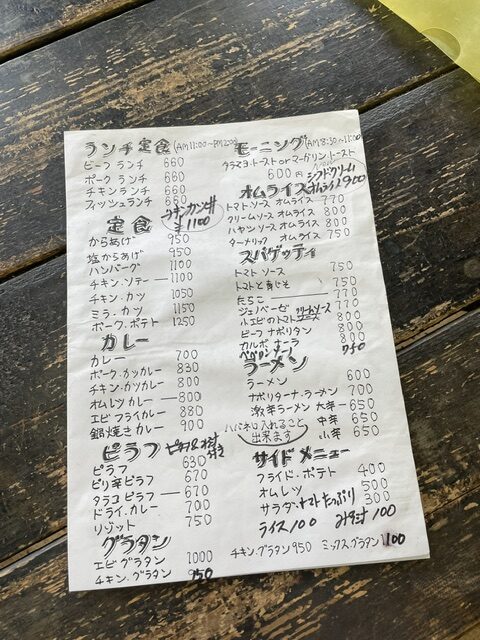 ランチ定食(AM11:00〜PM2:00)
ビーフ ランチ 660
ポーク ランチ 660
チキンランチ 660
フィッシュランチ 660
定食
チキンカツ丼 ¥1100
からあげ 950
塩からあげ 950
ハンバーグ 1100
チキン・ソテー 1100
チキン・カツ 1050
ミラ・カツ 1150
ポーク・ポテト 1250
カレー
カレー 700
ポーク・カツカレー 830
チキン・カツカレー 800
オムレツ カレー 800
エビ フライカレー 880
鍋焼きカレー 900
ピラフ
ピラフ 630
ピリ辛ピラフ 670
タラコ ピラフ 670
ドライ・カレー 700
リゾット 750
グラタン
エビ グラタン 1000
チキン・グラタン
モーニング(AM8:30〜11:00)
タラマヨトーストorマーガリントースト
600円
オムライス
オムライス 900
トマトソース オムライス 770
クリームソース オムライス 800
ハヤシソース オムライス 800
ターメリック オムライス 750
スパゲッティ
トマト ソース 750
トマトと青じそ 750
たらこ 770
ジェノベーゼ 770
小エビのトマトソース 800
ビーフ ナポリタン 800
カルボナーラ 800
750
ラーメン
ラーメン 600
ナポリターナ・ラーメン 700
激辛ラーメン 大辛 650
中辛 650
小辛 650
ハバネロ入れること
出来ます
サイド メニュー
フライド・ポテト 400
オムレツ 500
サラダ・トマトたっぷり 300
ライス100 みそ汁 100
チキン・グラタン 950 ミックス・グラタン 1100